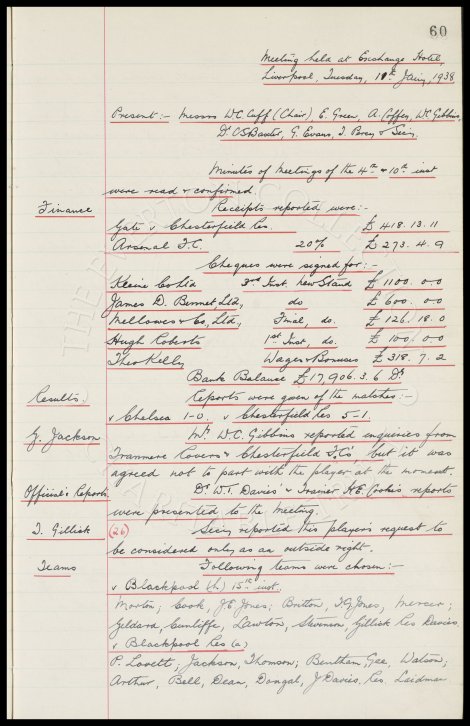 60
Meeting held at Exchange Hotel,
Liverpool, Tuesday, 11th Jany, 1938
Present:- Messrs W.C. Cuff (Chair), E. Green, A. Coffey, W.C. Gibbins,
Dr. C.S. Baxter, G. Evans, & Secy.
Minutes of Meetings of the 4th & 10th inst
were read & confirmed.
Finance
Receipts reported were:-
Gate v Chesterfield Res. £418.13.11
Arsenal F.C. 20% £273.4.9
Cheques were signed for:-
Kleine Co Ltd 3rd Inst. New Stand £1100.0.0
James D. Bennet, Ltd, do £600.0.0
Mellowes & Co, Ltd, Final, do. £126.18.0
Hugh Roberts 1st Inst, do. £100.0.0
Theo Kelly Wages & Bonuses £318.7.2
Bank Balance £17,906.3.6 Dr
Results.
Reports were given of the matches:-
v Chelsea 1-0, v Chesterfield Res 5-1.
G. Jackson
Mr. W.C. Gibbins reported enquiries from
Tranmere Rovers & Chesterfield F.Cs' but it was
agreed not to part with the player at the moment.
Official's Reports
Dr W.T. Davies' & Trainer H.E. Cooke's reports
were presented to the meeting.
T. Gillick
(26) Secy reported this player's request to
be considered only as an outside right.
Teams
Following teams were chosen:-
v Blackpool (h) 15th inst.
Morton; Cook, J.E. Jones; Britton, T.G. Jones, Mercer;
Geldard, Cunliffe, Lawton, Stevenson, Gillick Res Davies
v Blackpool Res (a)
P. Lovett, Jackson, Thomson; Bentham, Gee, Watson;
Arthur, Bell, Dean, Dougal, J Davies, Res. Laidman